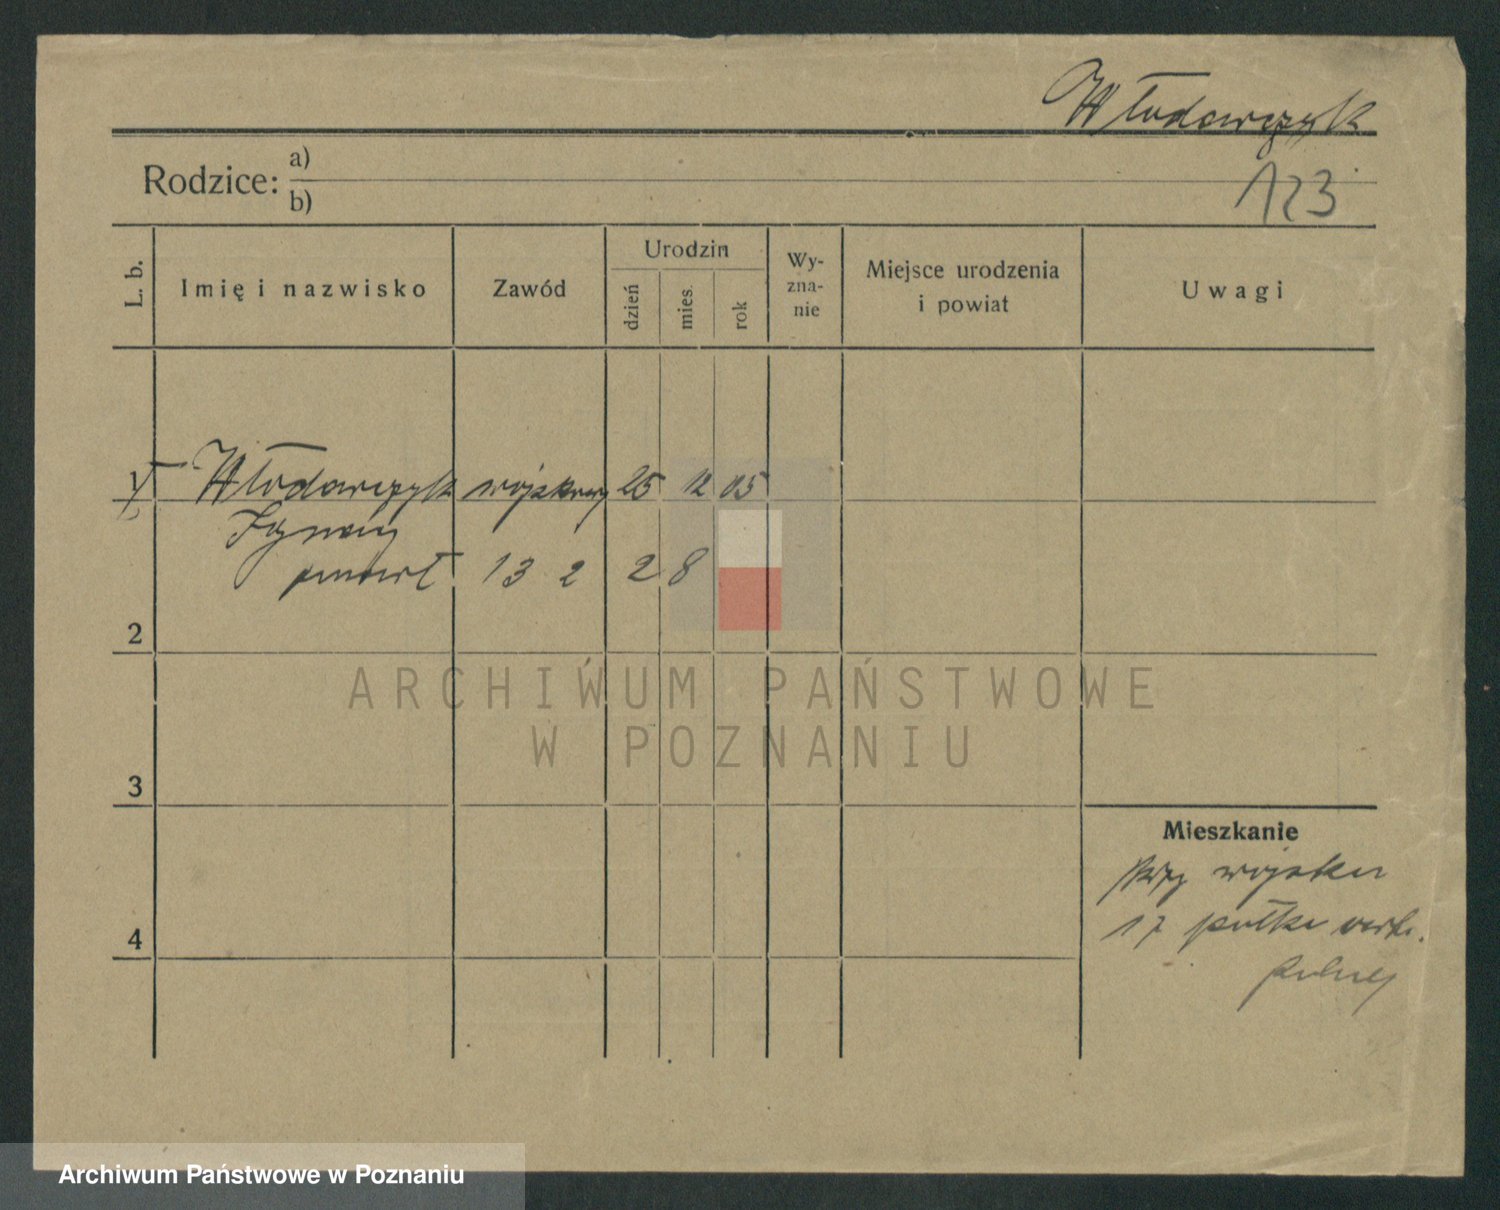 Włodarczyk
Rodzice: a)
b)
123
L. b.
Imię i nazwisko
Zawód
Urodzin
dzień
mies.
rok
Wy-
zna-
nie
Miejsce urodzenia
i powiat
Uwagi
1 Włodarczyk wojskowy 25 12 05
Ignacy
zmarł 13 2 28
2
ARCHIWUM PAŃSTWOWE
W POZNANIU
3
Mieszkanie
przy wojsku
4
17 pułku
polnej
Archiwum Państwowe w Poznaniu